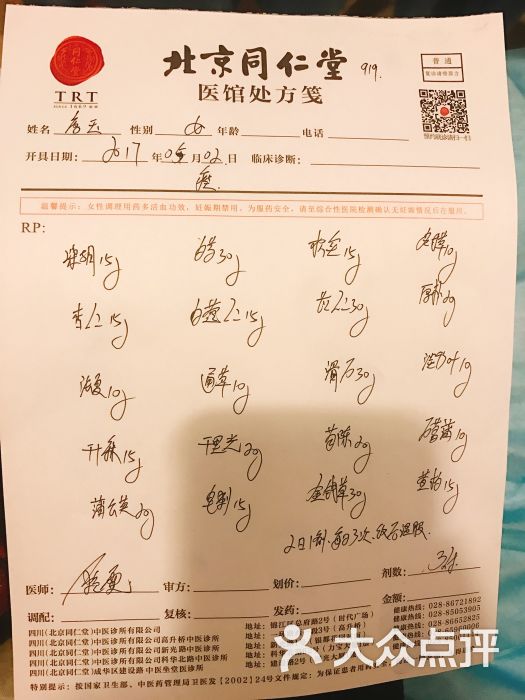 同仁堂
TRT
北京同仁堂 919.
医馆处方笺
普通
复诊请带原方
姓名 性别 女 年龄 电话
开具日期: 2017 年 月 02 日 临床诊断:
温馨提示:女性调理用药多活血功效,妊娠期禁用。为服药安全,请至综合性医院检测确认无妊娠情况后在服用。
RP:
柴胡15g 白芍30g 15g 10g
杏仁15g 白蔻仁15g 苡仁30g 厚朴20g
法夏10g 通草10g 滑石30g 淡竹叶10g
升麻15g 千里光20g 茵陈20g 石菖蒲10g
蒲公英20g 皂刺15g 金钱草30g 15g
2日1剂、每日3次、饭后温服
医师: 审方: 划价: 剂数: 3剂
调配: 复核: 发药: 金额:
四川(北京同仁堂)中医诊所有限公司 地址:锦江区总府路2号(时代广场) 健康热线:028-86721892
四川(北京同仁堂)中医诊所有限公司高升桥中医诊所 健康热线:028-85053905
四川(北京同仁堂)中医诊所有限公司新光路中医诊所 健康热线:028-86652825
四川(北京同仁堂)中医诊所有限公司科华北路中医诊所
四川(北京同仁堂)成华区建设路中医坐堂医诊所
特别提示:按国家卫生部、中医药管理局卫医发【2002】24号文件规定:为保证患者用
大众点评